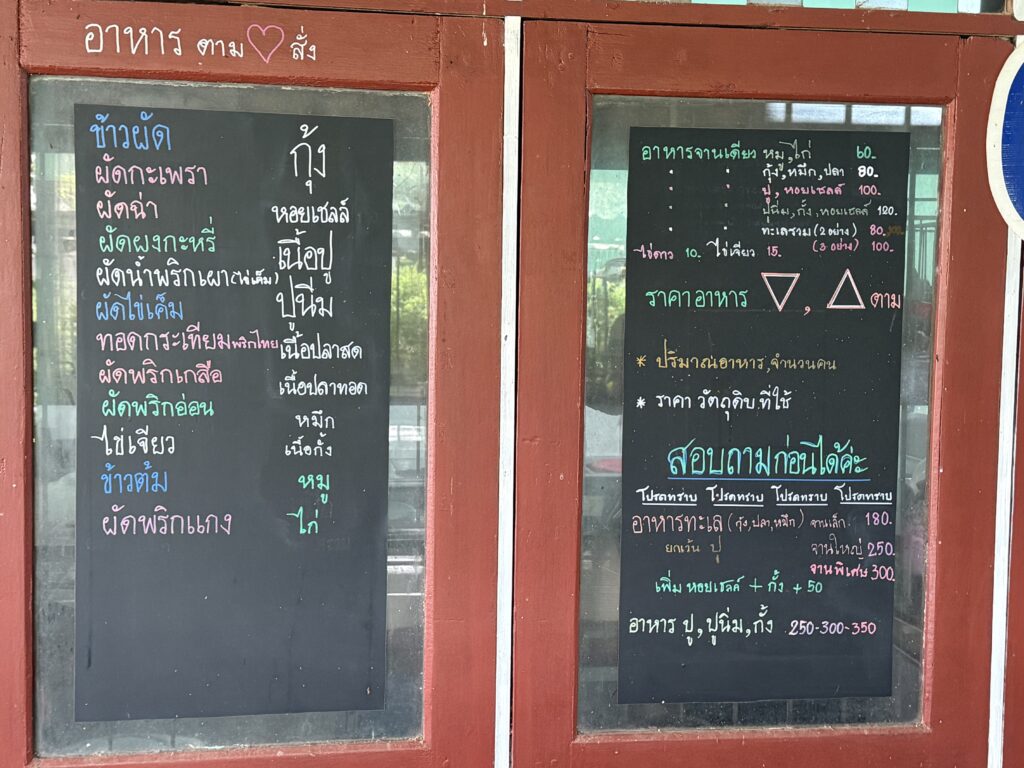 อาหาร ตาม♡สั่ง
ข้าวผัด
ผัดกะเพรา
ผัดฉ่า
ผัดผงกะหรี่
ผัดน้ำพริกเผา(ไข่เค็ม)
ผัดไข่เค็ม
ทอดกระเทียมพริกไทย
ผัดพริกเกลือ
ผัดพริกอ่อน
ไข่เจียว
ข้าวต้ม
ผัดพริกแกง
กุ้ง
หอยเชลล์
เนื้อปู
ปูนิ่ม
เนื้อปลาสด
เนื้อปลาทอด
หมึก
เนื้อกั้ง
หมู
ไก่
อาหารจานเดียว หมู,ไก่ 60.-
" " กุ้ง,หมึก,ปลา 80.-
" " ปู,หอยเชลล์ 100.-
" " ปูนิ่ม,กั้ง,หอยเชลล์ 120.-
" " ทะเลรวม (2 อย่าง) 80.-
(3 อย่าง) 100.-
ไข่ดาว 10.- ไข่เจียว 15.-
ราคาอาหาร ▽, △ ตาม
* ปริมาณอาหาร,จำนวนคน
* ราคา วัตถุดิบ ที่ใช้
สอบถามก่อนได้ค่ะ
โปรดทราบ โปรดทราบ โปรดทราบ โปรดทราบ
อาหารทะเล (กุ้ง,ปลา,หมึก) จานเล็ก 180.-
ยกเว้น ปู จานใหญ่ 250.-
จานพิเศษ 300.-
เพิ่ม หอยเชลล์ + กั้ง +50
อาหาร ปู,ปูนิ่ม,กั้ง 250-300-350